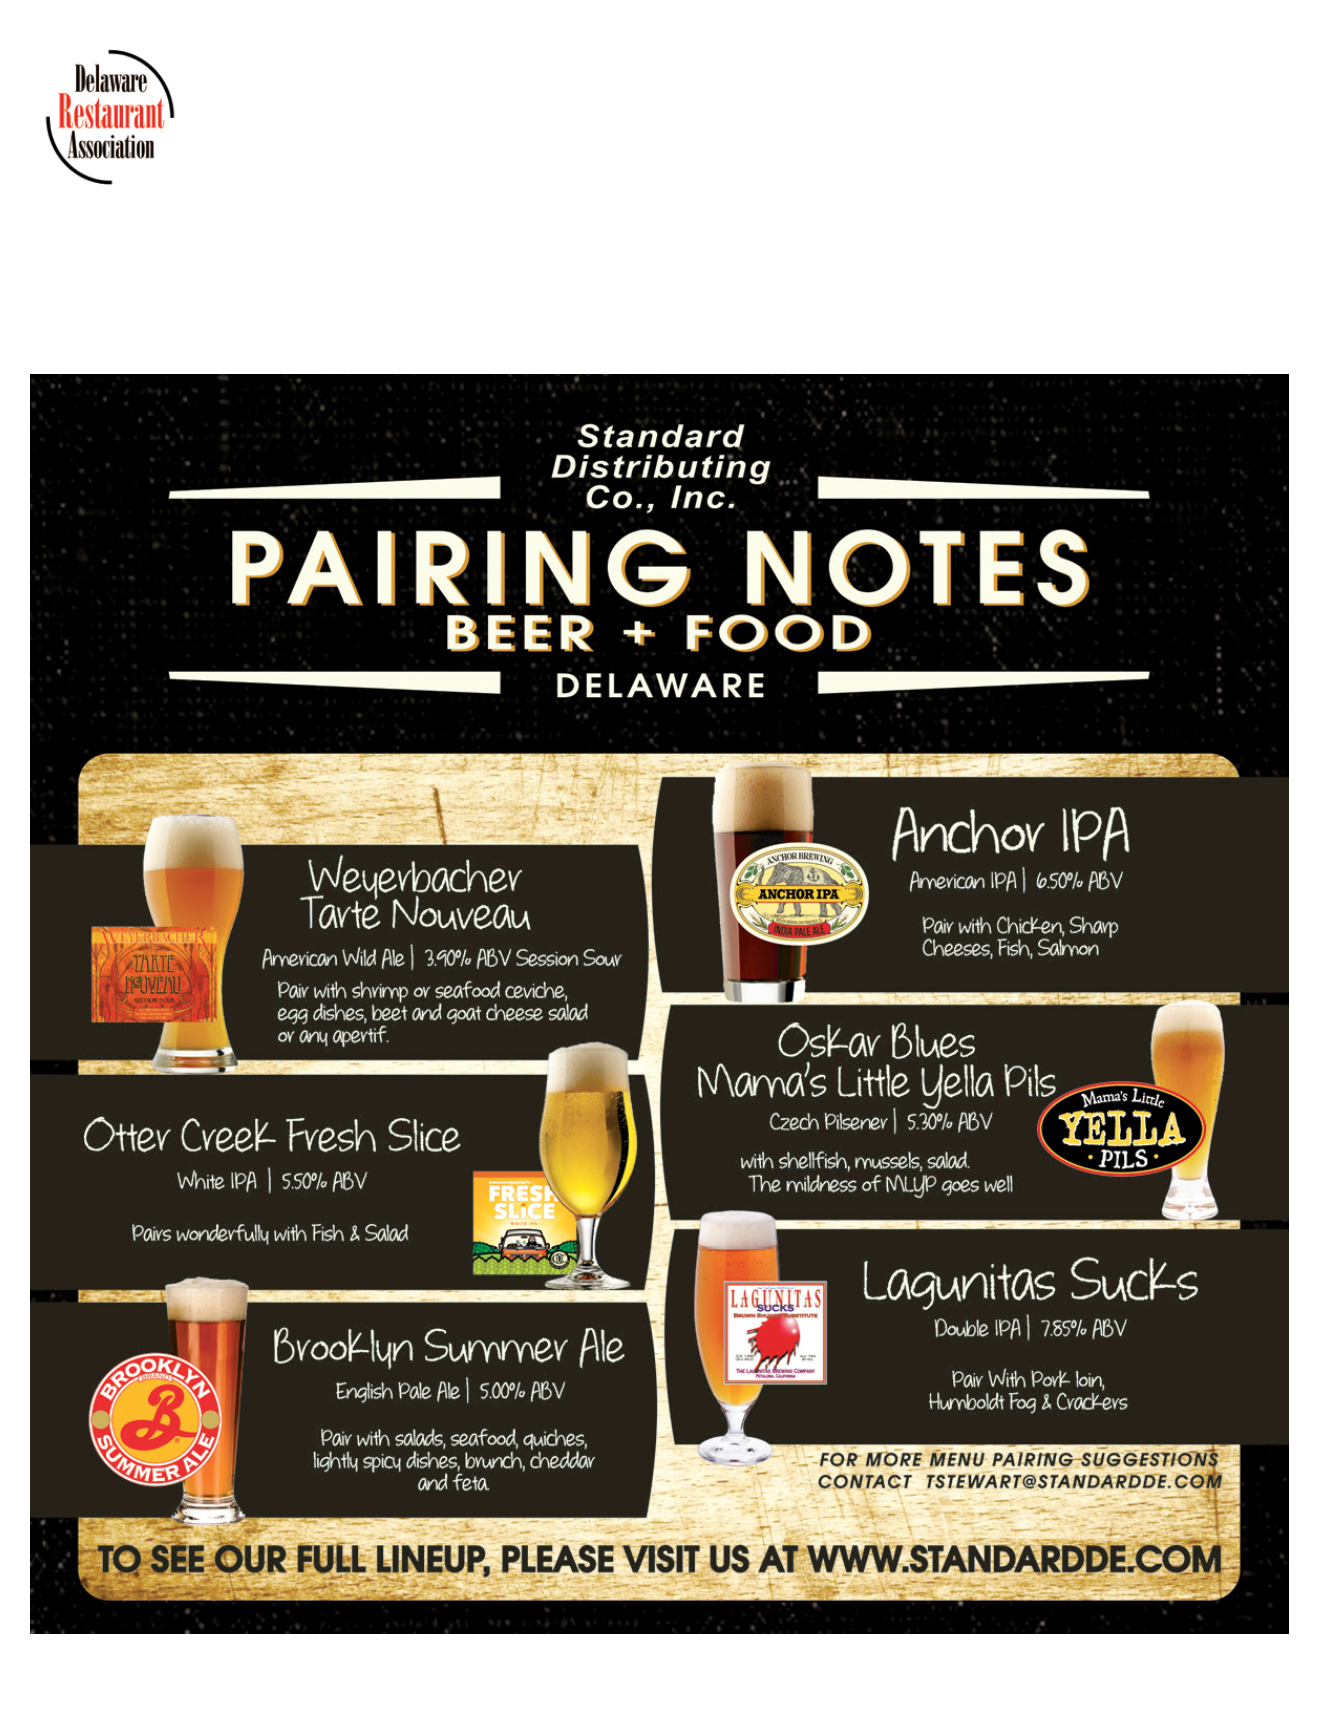 Delaware
Restaurant
Association
Standard
Distributing
Co., Inc.
PAIRING NOTES
BEER + FOOD
DELAWARE
Weyerbacher
Tarte Nouveau
American Wild Ale | 3.90% ABV Session Sour
Pair with shrimp or seafood ceviche,
egg dishes, beet and goat cheese salad
or any apertif.
WEYERBACHER
TARTE
NOUVEAU
SESSION SOUR
Otter Creek Fresh Slice
White IPA | 5.50% ABV
Pairs wonderfully with Fish & Salad
FRESH
SLICE
WHITE IPA
Brooklyn Summer Ale
English Pale Ale | 5.00% ABV
Pair with salads, seafood, quiches,
lightly spicy dishes, brunch, cheddar
and feta.
BROOKLYN
BRAND
B
SUMMER ALE
Anchor IPA
American IPA | 6.50% ABV
Pair with Chicken, Sharp
Cheeses, Fish, Salmon
ANCHOR BREWING
ANCHOR IPA
INDIA PALE ALE
Oskar Blues
Mama's Little Yella Pils
Czech Pilsener | 5.30% ABV
with shellfish, mussels, salad.
The mildness of MLYP goes well
Mama's Little
YELLA
PILS
Lagunitas Sucks
Double IPA | 7.85% ABV
Pair With Pork loin,
Humboldt Fog & Crackers
LAGUNITAS
SUCKS
BROWN SHUGGA SUBSTITUTE
THE LAGUNITAS BREWING COMPANY
PETALUMA, CALIFORNIA
FOR MORE MENU PAIRING SUGGESTIONS
CONTACT TSTEWART@STANDARDDE.COM
TO SEE OUR FULL LINEUP, PLEASE VISIT US AT WWW.STANDARDDE.COM